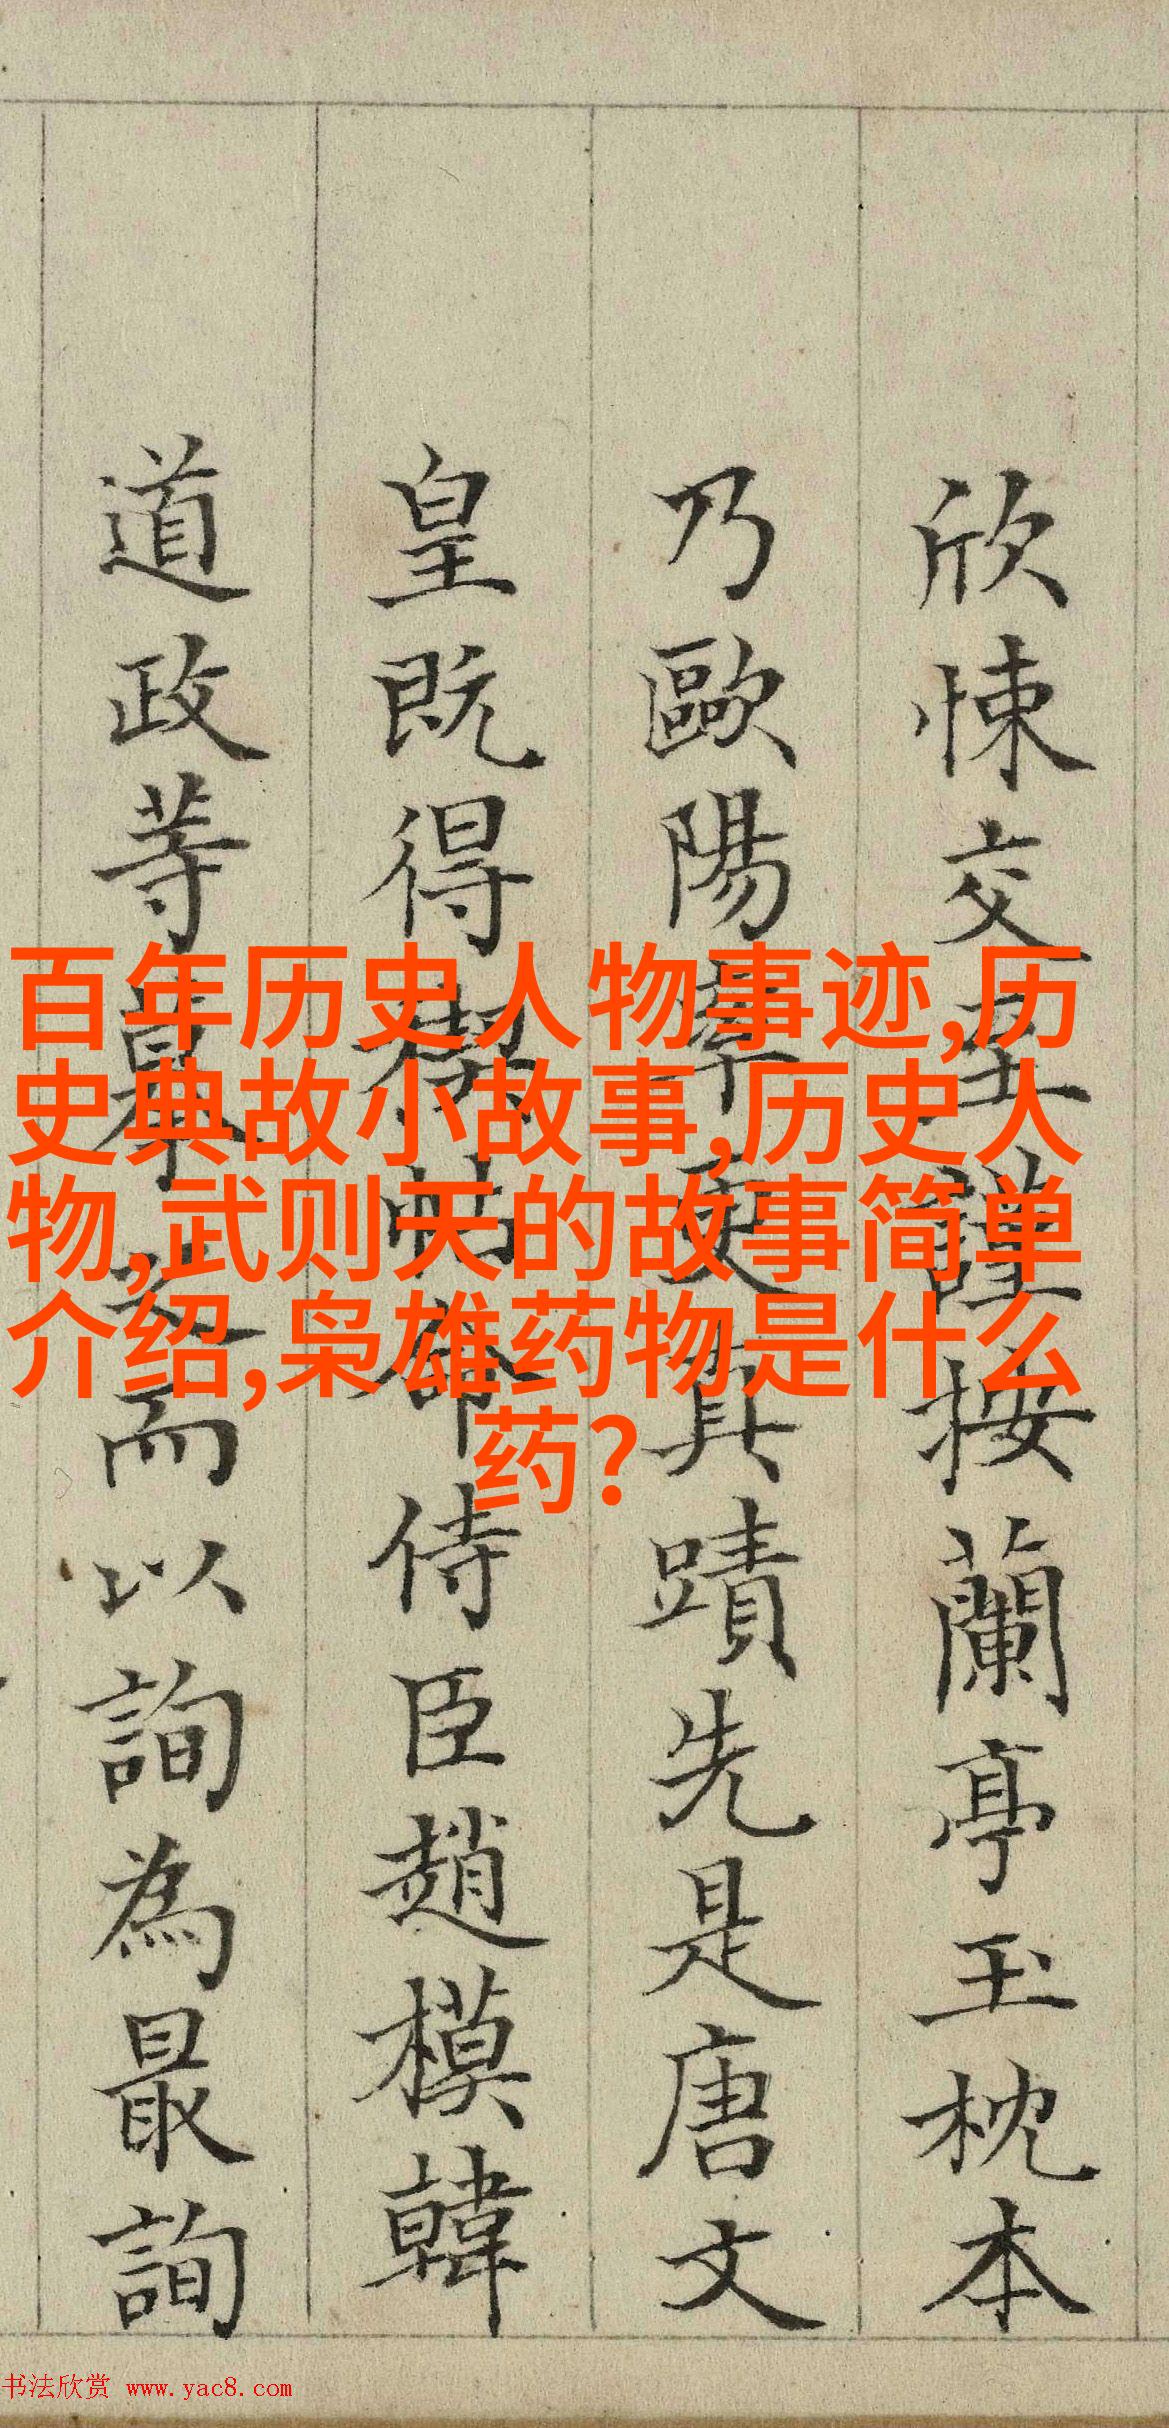 欣悚交至謹按蘭亭玉枕本
乃歐陽率更真蹟先是唐文
皇既得禊帖命侍臣趙模韓
道政等摹之而以詢為最詢
百年历史人物事迹,历
史典故小故事,历史人
物,武则天的故事简单
介绍,枭雄药物是什么
药?
书法欣赏 www.yac8.com